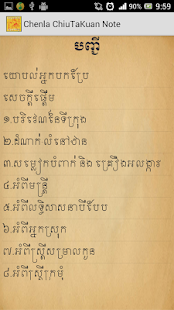 9:59
Chenla ChiuTaKuan Note
បញ្ជី
យោបល់អ្នកបកប្រែ
សេចក្ដីផ្ដើម
១.បរិវេណនៃទីក្រុង
២.ដំណាក់ លំនៅឋាន
៣.សម្លៀកបំពាក់ និង គ្រឿងអលង្ការ
៤.អំពីមន្ត្រី
៥.អំពីលទ្ធិសាសនាបីបែប
៦.អំពីអ្នកស្រុក
៧.អំពីស្ត្រីសម្រាលកូន
៨.អំពីស្ត្រីក្រមុំ